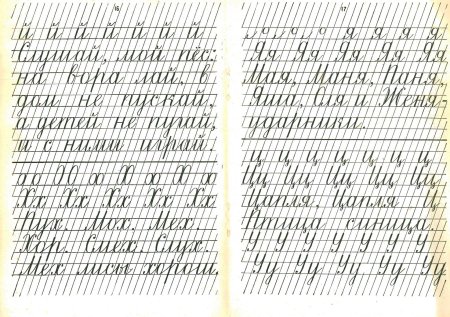 16
й й й й й й й й
Слушай, мой пёс:
на вора лай, в
дом не пускай,
а детей не пугай,
и с ними играй.
Хх Хх Хх Хх Хх
Пух. Мох. Мех.
Хор. Смех. Слух.
Мех лисы хорош.
17
я я я я
Яя Яя Яя Яя Яя
Мая, Маня, Паня,
Яша, Оля и Женя -
ударники.
ц ц ц ц ц ц ц ц
Цц Цц Цц Цц Цц Цц
Цапля, цапля Ц
Птица синица.
У У У У У У У У
Уу Уу Уу Уу Уу